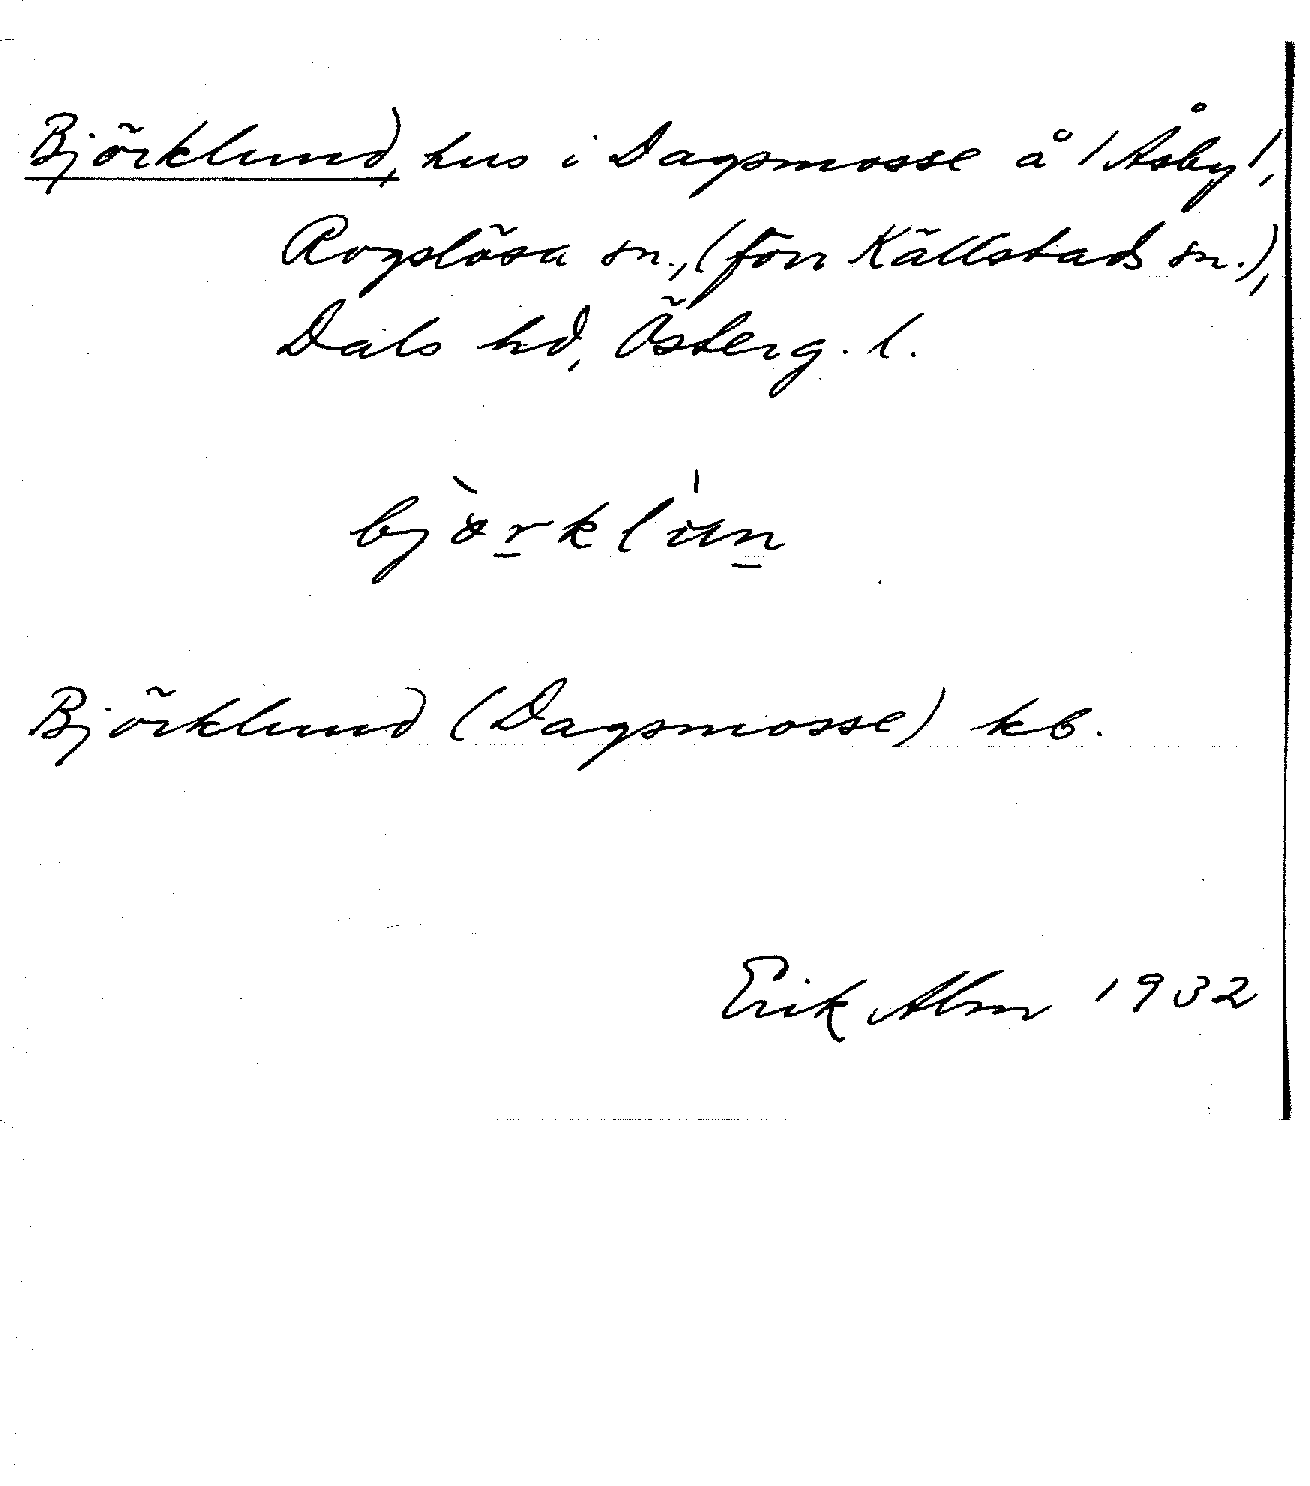 Björklund, hus i Dagsmosse å /Åsby/,
Rogslösa sn., (förr Källstads sn.),
Dals hd, Österg. l.
Björklund (Dagsmosse) kb.
Erik Alm 1932